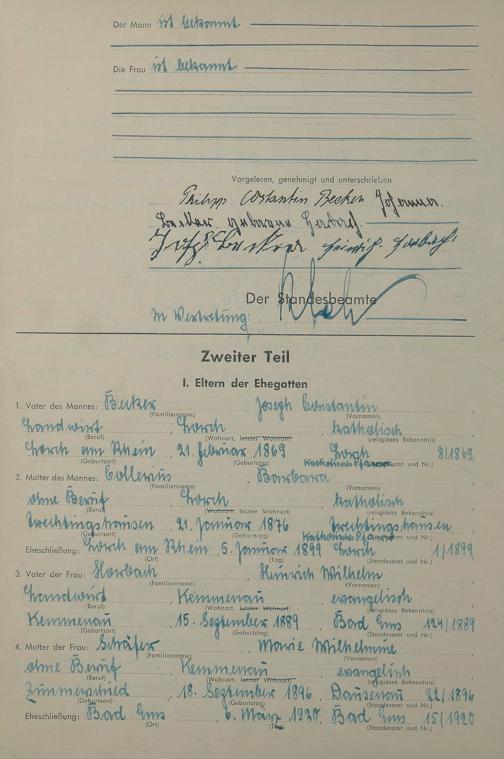 Der Mann ist bekannt
Die Frau ist bekannt
Vorgelesen, genehmigt und unterschrieben
Philipp Constantin Becker Johanna
Becker geborene Harbach
Becker Heinrich Harbach
Der Standesbeamte
In Vertretung
Zweiter Teil
I. Eltern der Ehegatten
1. Vater des Mannes: Becker Joseph Constantin
(Familienname) (Vornamen)
Landwirt Lorch katholisch
(Beruf) (Wohnort, letzter Wohnort) (religiöses Bekenntnis)
Lorch am Rhein 21. Februar 1869 Lorch 8/1869
(Geburtsort) (Geburtstag) Katholisches Pfarramt und Nr.)
2. Mutter des Mannes: Collerius Barbara
(Familienname) (Vornamen)
ohne Beruf Lorch katholisch
(Beruf) (Wohnort, letzter Wohnort) (religiöses Bekenntnis)
Trechtingshausen 21. Januar 1876 Trechtingshausen
(Geburtsort) (Geburtstag) Katholisches Pfarramt und Nr.)
Eheschließung: Lorch am Rhein 5. Januar 1899 Lorch 1/1899
(Ort) (Tag) (Standesamt und Nr.)
3. Vater der Frau: Harbach Heinrich Wilhelm
(Familienname) (Vornamen)
Landwirt Kemmenau evangelisch
(Beruf) (Wohnort, letzter Wohnort) (religiöses Bekenntnis)
Kemmenau 15. September 1889 Bad Ems 124/1889
(Geburtsort) (Geburtstag) (Standesamt und Nr.)
4. Mutter der Frau: Schäfer Marie Wilhelmine
(Familienname) (Vornamen)
ohne Beruf Kemmenau evangelisch
(Beruf) (Wohnort, letzter Wohnort) (religiöses Bekenntnis)
Zimmerschied 18. September 1896 Dausenau 22/1896
(Geburtsort) (Geburtstag) (Standesamt und Nr.)
Eheschließung: Bad Ems 6. März 1920 Bad Ems 15/1920
(Ort) (Tag) (Standesamt und Nr.)